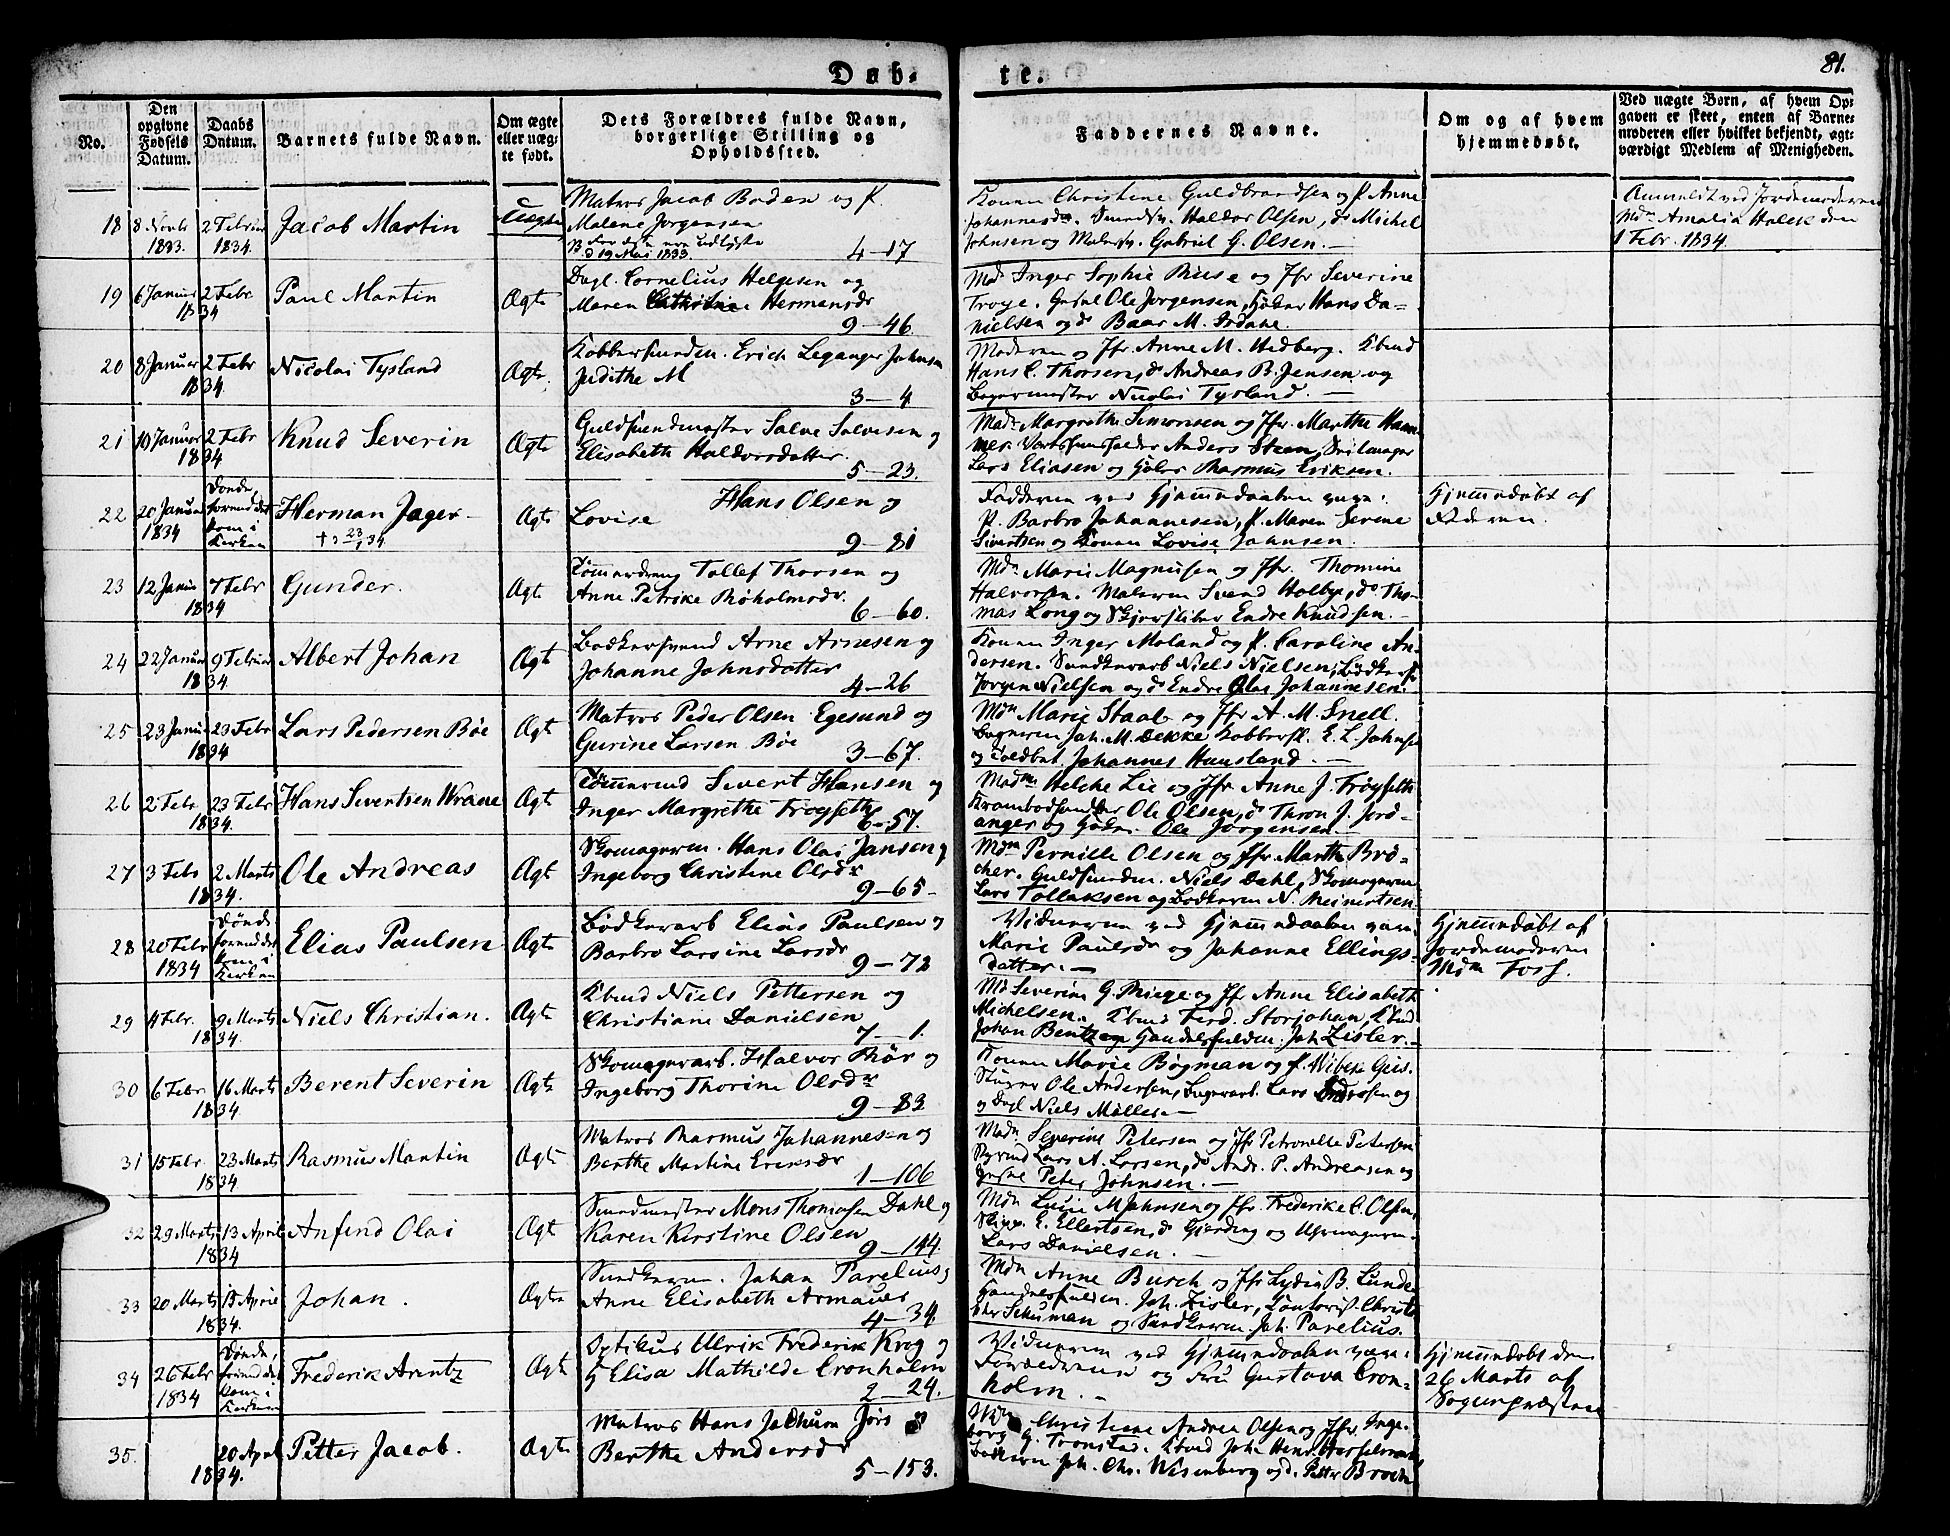 Døb-
te.
81.
No.
Den opgivne Fødsels Datum.
Daabs Datum.
Barnets fulde Navn.
Om ægte eller uæg-te født.
Dets Forældres fulde Navn, borgerlige Stilling og Opholdssted.
Faddernes Navne.
Om og af hvem hjemmedøbt.
Ved uægte Børn, af hvem Op-gaven er skeet, enten af Barne-moderen eller hvilket bekjendt, agt-værdigt Medlem af Menigheden.
18 8 Novbr 1833. 2 Februar 1834. Jacob Martin Uægte
Matros Jacob Boden og P.
Malene Jørgensen
4-17
Konen Christine Guldbrandsen og P. Anne
Johannesdr. Haldor Olsen, do Michel
Johnsen og Gabriel G. Olsen.
Anmeldt ved Jordemoderen
Mdm Amalia Holck den
1 Febr. 1834.
19 6 Januar 2 Febr 1834 Paul Martin Ægte
Dagl. Cornelius Helgesen og
Maren Cathrine Hermansdr
9-46
Mdm Inger Sophie Riise og Jfr Severine
Troye. Ole Jørgensen, Hans Da-
nielsen og do Baar M. Irdahe.
20 8 Januar 2 Febr 1834 Nicolai Tysland Ægte
Kobbersvenden. Erich Leganger Johnsen
Judithe M
3-4
Moderen og Jfr. Anne M. Hedberg.
Hans C. Thorsen, do Andreas B. Jensen og
Bagermester Nicolai Tysland.
21 10 Januar 2 Febr 1834 Knud Severin Ægte
Guldsmedmester Salve Salvesen og
Elisabeth Haldorsdatter.
5-23.
Mad Margrethe Simonsen og Jfr. Marthe Ham-
mer. Anders Steen, Seilmager
Lars Eliasen og Rasmus Eriksen.
22 20 Januar 1834 Døde, forend det kom i Kirken Herman Jager Ægte
Hans Olsen og
Lovise
9-81
Fadderne ved Hjemmedaaben vare:
P. Barbro Johannesen, P. Maren Serine
Sivertsen og Konen Lovise Johnsen.
Hjemmedøbt af
Faderen.
23 12 Januar 7 Febr 1834 Gunder. Ægte
Tømmerdreng Tollef Thorsen og
Anne Petrike Røholmsdr.
6-60.
Mdm Marie Magnusen og Jfr. Thomine
Halvorsen. Maleren Svend Holbye, do Tho-
mas Long og Endre Knudsen.
24 22 Januar 9 Februar 1834 Albert Johan Ægte
Bødkersvend Arne Arnesen og
Johanne Johnsdatter
4-26
Konen Inger Moland og P. Caroline An-
dersen. Niels Nielsen, Bødkersv.
Jørgen Nielsen og do Endre Olai Johannesen.
25 23 Januar 23 Febr 1834 Lars Pedersen Bøe Ægt
Matros Peder Olsen Egesund og
Gurine Larsen Bøe
3-67.
Mdm Marie Staab og Jfr A. M. Snell.
Bagneren Joh. M. Dekke E. L. Johnsen
og Johannes Huusland.
26 2 Febr 23 Febr 1834. Hans Sivertsen Wraae Ægt
Sivert Hansen og
Inger Margrethe Frøyseth
6-57.
Madm Helche Lie og Jfr Anne J. Frøyseth
Ole Olsen, do Thron J. Jord-
anger og Ole Jørgensen.
27 3 Febr 2 Marts 1834. Ole Andreas Ægt
Skomageren. Hans Olai Jansen og
Ingeborg Christine Olsdr
9-65
Mdm Pernille Olsen og Jfr Marthe Brø-
cher. Niels Dahl, Skomageren
Lars Tollaksen og Bødkeren N. Meinertsen.
28 20 Febr 1834 Døde forend det kom i Kirken Elias Paulsen Ægt
Bødkerarb Elias Paulsen og
Barbro Larsine Larsdr
9-72
Vidnerne ved Hjemmedaaben vare:
Marie Paulsdr og Johanne Ellings-
datter.
Hjemmedøbt af
Jordemoderen
Mdm Foss.
29 4 Febr. 9 Marts 1834. Niels Christian. Ægt
Kbmd Niels Pettersen og
Christiane Danielsen
7-1.
Md Severine G. Miege og Jfr Anne Elisabeth
Michelsen. Kbmd Ferd. Storjohan, Kbmd
Johan Bentzen Joh. Zisler.
30 6 Febr 16 Marts 1834 Berent Severin Ægt
Skomagerarb. Halvor Rør og
Ingeborg Thorine Olsdr
9-83
Konen Marie Bøgman og P. Wibeke Gus.
Ole Andersen, Lars Endresen og
og Dagl Niels Møller.
31 15 Febr. 23 Marts 1834 Rasmus Martin Ægt
Matros Rasmus Johannesen og
Berthe Martine Eriksdr
1-106
Madm Severine Petersen og Jfr Petronille Petersen
Lars A. Larsen, do Andr. P. Andreasen og
Peter Johnsen.
32 29 Marts 13 April 1834 Anfind Olai Ægt
Smedmester Mons Thomasen Dahl og
Karen Kirstine Olsen
9-144.
Mdm Luise M Johnsen og Jfr. Frederike C. Olsen,
Skipp. E. Ellertsen, do Gjerding og Uhrmageren
Lars Danielsen.
33 20 Marts 13 April 1834. Johan. Ægte
Johan Parelius og
Anne Elisabeth Armauer
4-34
Mdm Anne Busch og Jfr Lydia B. Lunde
Joh. Zisler, Christo-
pher Schuman og Joh. Parelius.
34 26 Febr 1834 Døde, forend det kom i Kirken Frederik Arentz Ægt
Optikus Ulrik Frederik Krog og
Elisa Mathilde Cronholm
2-24.
Vidnerne ved Hjemmedaaben vare:
Forældrene og Fru Gustava Cron-
holm.
Hjemmedøbt den
26 Marts af
Sognepræsten
35. 20 April 1834. Petter Jacob. Ægt
Matros Hans Jochum Jørs og
Berthe Andersdr
5-153.
Mdm Christiane Andrea Olsen og Jfr. Inge-
borg G. Tronstad. Joh. Henr. Hasselmann
Bødkeren Joh. Chr. Wesenberg og d. Petter Broch